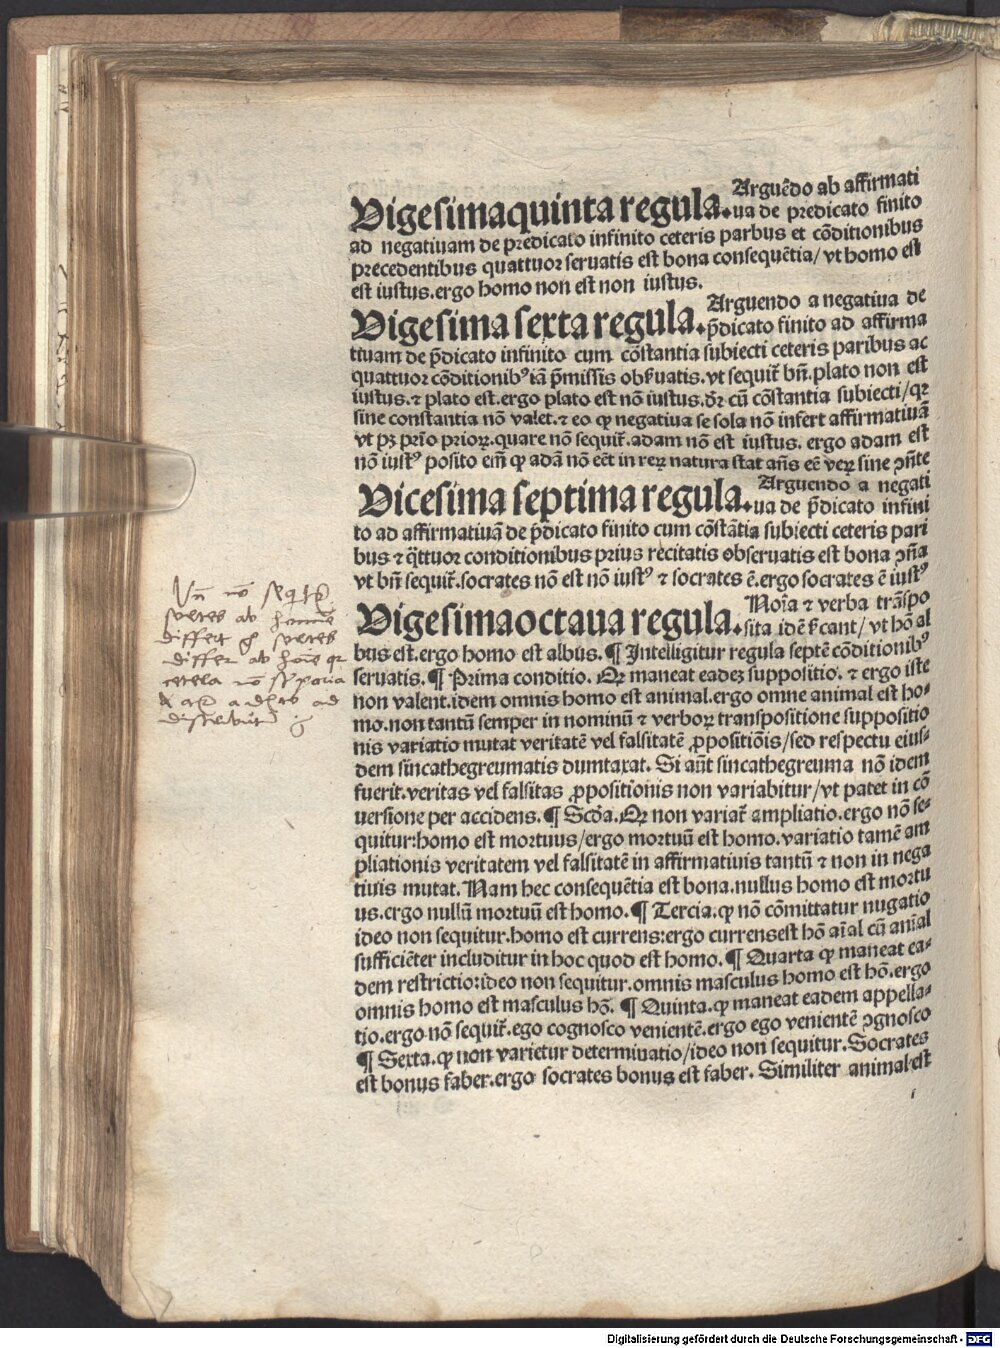 Arguẽdo ab affirmati
Vigesimaquinta regula. ua de predicato finito
ad negatiuam de predicato infinito ceteris parbus et cõditionibus
precedentibus quattuor seruatis est bona consequẽtia/ vt homo est
est iustus.ergo homo non est non iustus.
Arguendo a negatiua de
Vigesima sexta regula. p̃dicato finito ad affirma
tiuam de p̃dicato infinito cum cõstantia subiecti ceteris paribus ac
quattuor cõditionibꝰ iã p̃missis obẜuatis. vt sequit̃ bñ. plato non est
iustus. ⁊ plato est. ergo plato est nõ iustus. dr̃ cũ cõstantia subiecti/qꝛ
sine constantia nõ valet. ⁊ eo ꝙ negatiua se sola nõ infert affirmatiuã
vt pꝫ pr̃io prioꝝ. quare nõ sequit̃. adam nõ est iustus. ergo adam est
nõ iustꝰ posito em̃ ꝙ adã nõ eẽt in reꝝ natura stat añs eẽ veꝝ sine ꝯñte
Arguendo a negati
Vicesima septima regula. ua de p̃dicato infini
to ad affirmatiuã de p̃dicato finito cum cõstãtia subiecti ceteris pari
bus ⁊ q̃ttuor conditionibus prius recitatis obseruatis est bona ꝯña
vt bñ sequit̃. socrates nõ est nõ iustꝰ ⁊ socrates ẽ. ergo socrates ẽ iustꝰ
Noĩa ⁊ verba trãspo
Vigesimaoctaua regula. sita idẽ ẜcant/ vt hõ al
bus est. ergo homo est albus. ¶ Intelligitur regula septẽ cõditionibꝰ
seruatis. ¶ Prima conditio. Qꝛ maneat eadeꝫ suppositio. ⁊ ergo iste
non valent. idem omnis homo est animal. ergo omne animal est ho⸗
mo. non tantũ semper in nominũ ⁊ verboꝝ transpositione suppositio
nis variatio mutat veritatẽ vel falsitatẽ ꝓpositiõis/sed respectu eius⸗
dem sincathegreumatis dumtaxat. Si aũt sincathegreuma nõ idem
fuerit. veritas vel falsitas ꝓpositionis non variabitur/vt patet in cõ
uersione per accidens. ¶ Scd̃a. Qꝛ non variat̃ ampliatio. ergo nõ se⸗
quitur: homo est mortuus/ergo mortuũ est homo. variatio tamẽ am
pliationis veritatem vel falsitatẽ in affirmatiuis tantũ ⁊ non in nega
tiuis mutat. Nam hec consequẽtia est bona. nullus homo est mortu
us. ergo nullũ mortuũ est homo. ¶ Tercia. ꝙ nõ cõmittatur nugatio
ideo non sequitur. homo est currens: ergo currens est hõ aĩal cũ anĩal
sufficiẽter includitur in hoc quod est homo. ¶ Quarta ꝙ maneat ea⸗
dem restrictio: ideo non sequitur. omnis masculus homo est hõ. ergo
omnis homo est masculus hõ. ¶ Quinta. ꝙ maneat eadem appella⸗
tio. ergo nõ sequit̃. ego cognosco venientẽ. ergo ego venientẽ ꝯgnosco
¶ Sexta. ꝙ non varietur determinatio/ideo non sequitur. Socrates
est bonus faber. ergo socrates bonus est faber. Similiter animal est
Digitalisierung gefördert durch die Deutsche Forschungsgemeinschaft - DFG